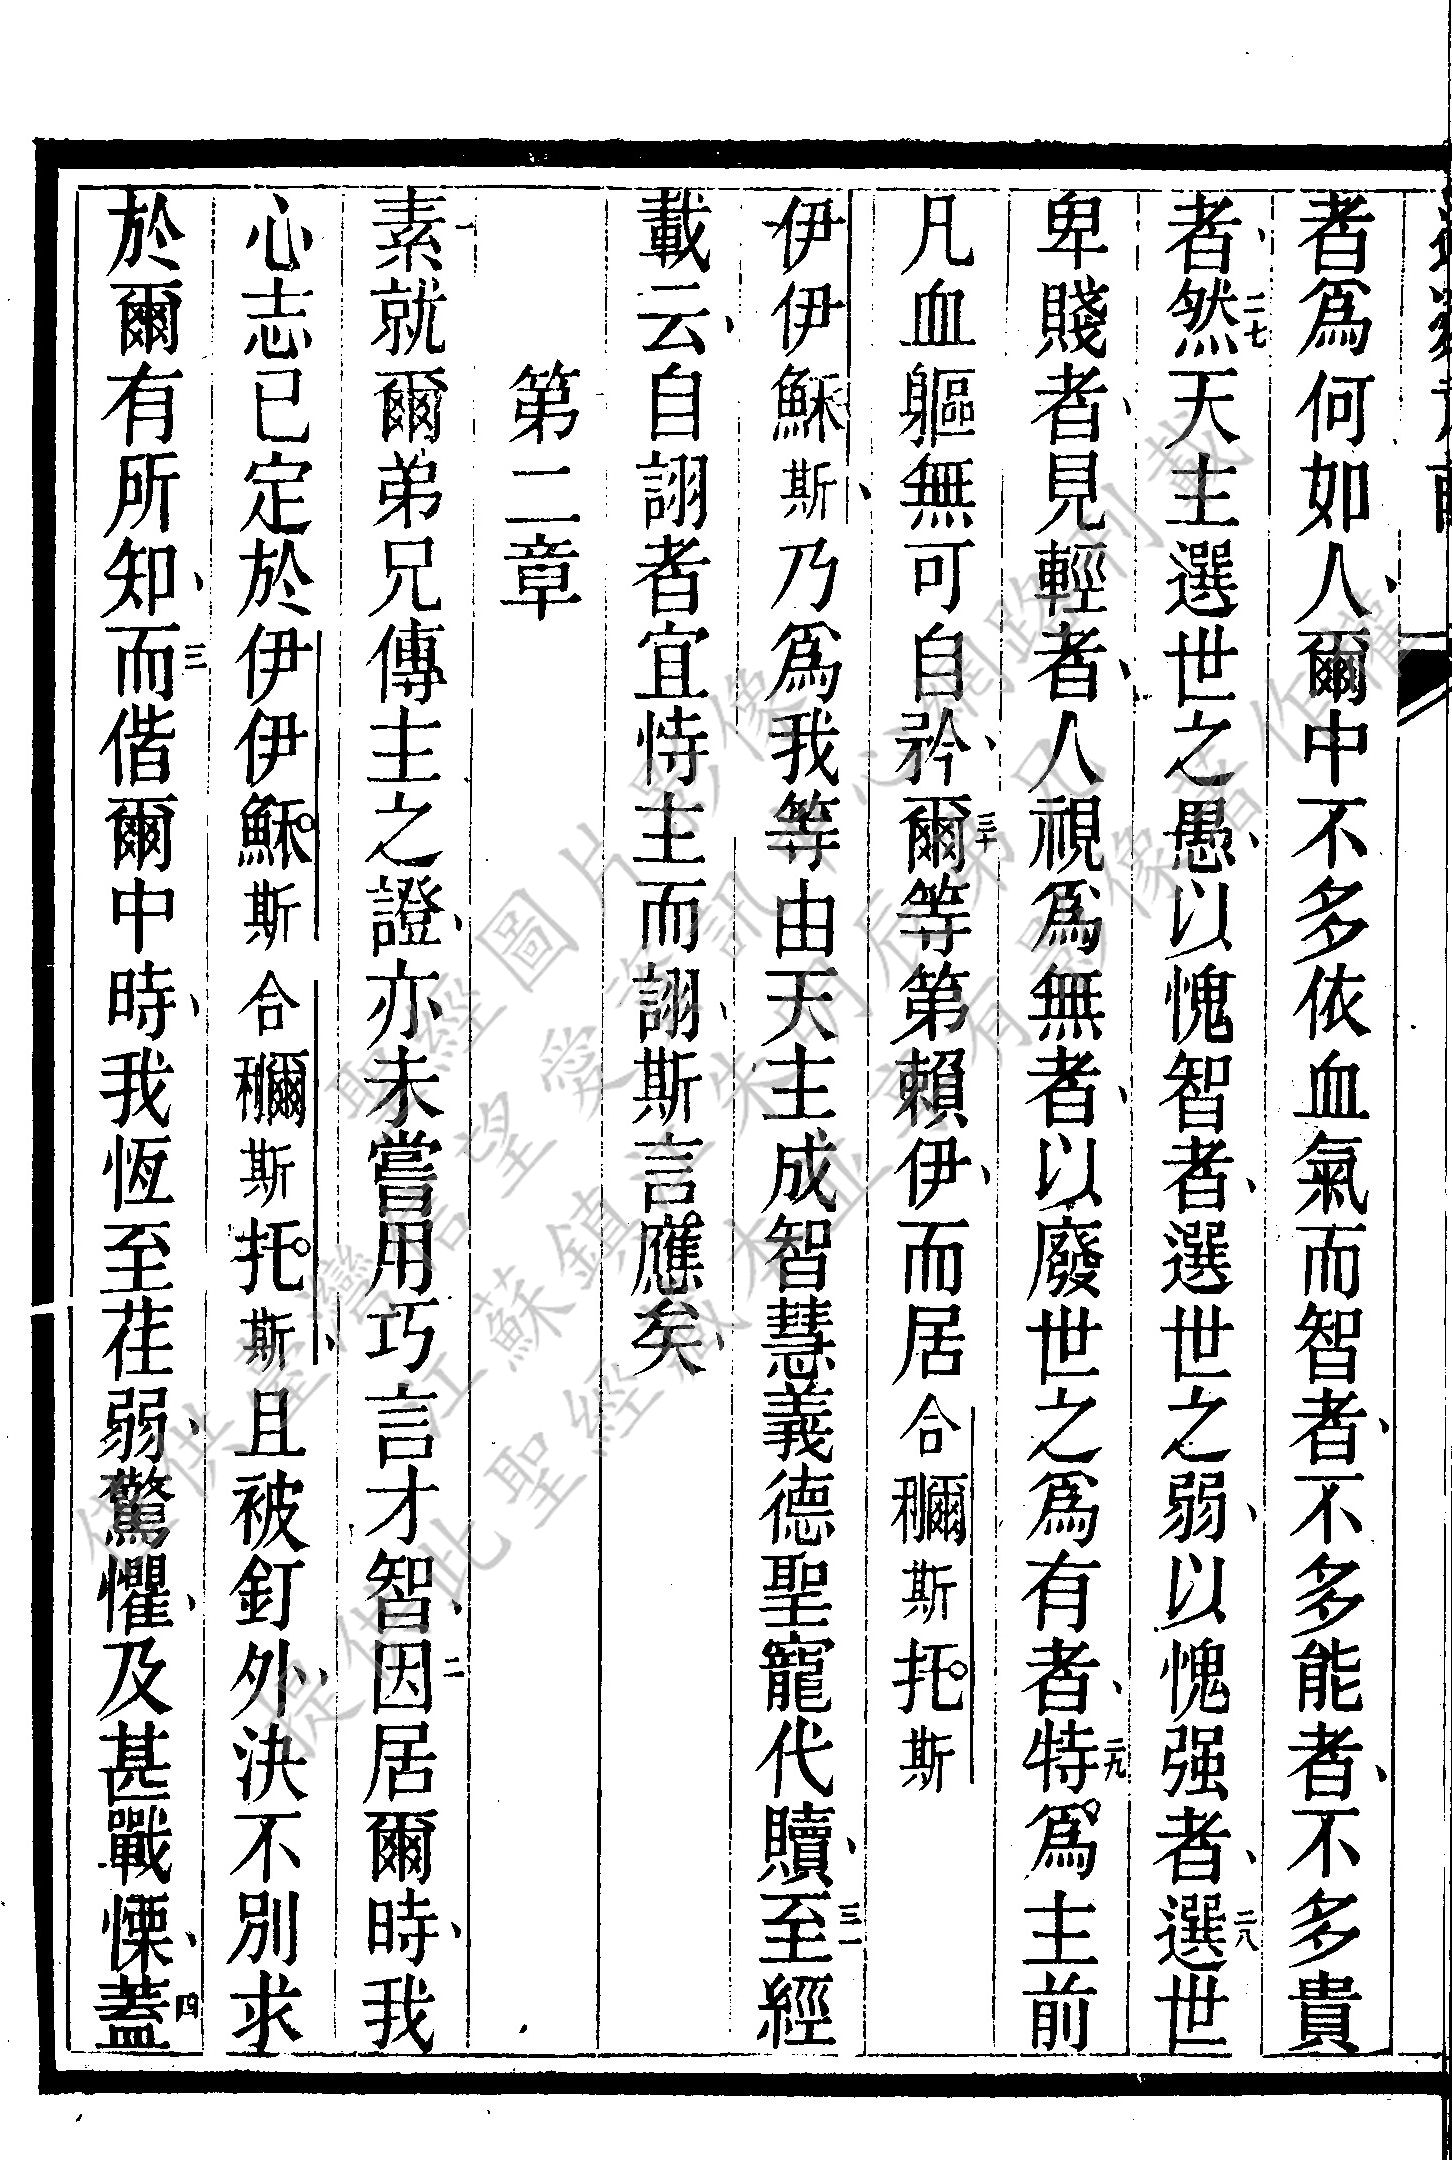 者爲何如人、爾中不多依血氣而智者、不多能者、不多貴
者、二七然天主選世之愚、以愧智者、選世之弱、以愧强者、二八選世
卑賤者、見輕者、人視爲無者、以廢世之爲有者、二九特爲主前
凡血軀無可自矜、三十爾等第賴伊、而居合𥣯斯托斯
伊伊穌斯、乃爲我等由天主成智慧義德聖寵代贖、三一至經
載云、自詡者宜恃主而詡、斯言應矣、
第二章
一素就爾弟兄傳主之證、亦未嘗用巧言才智、二因居爾時、我
心志已定於伊伊穌斯合𥣯斯托斯、且被釘外、決不別求
於爾有所知、三而偕爾中時、我恆至荏弱、驚懼、及甚戰慄、四蓋